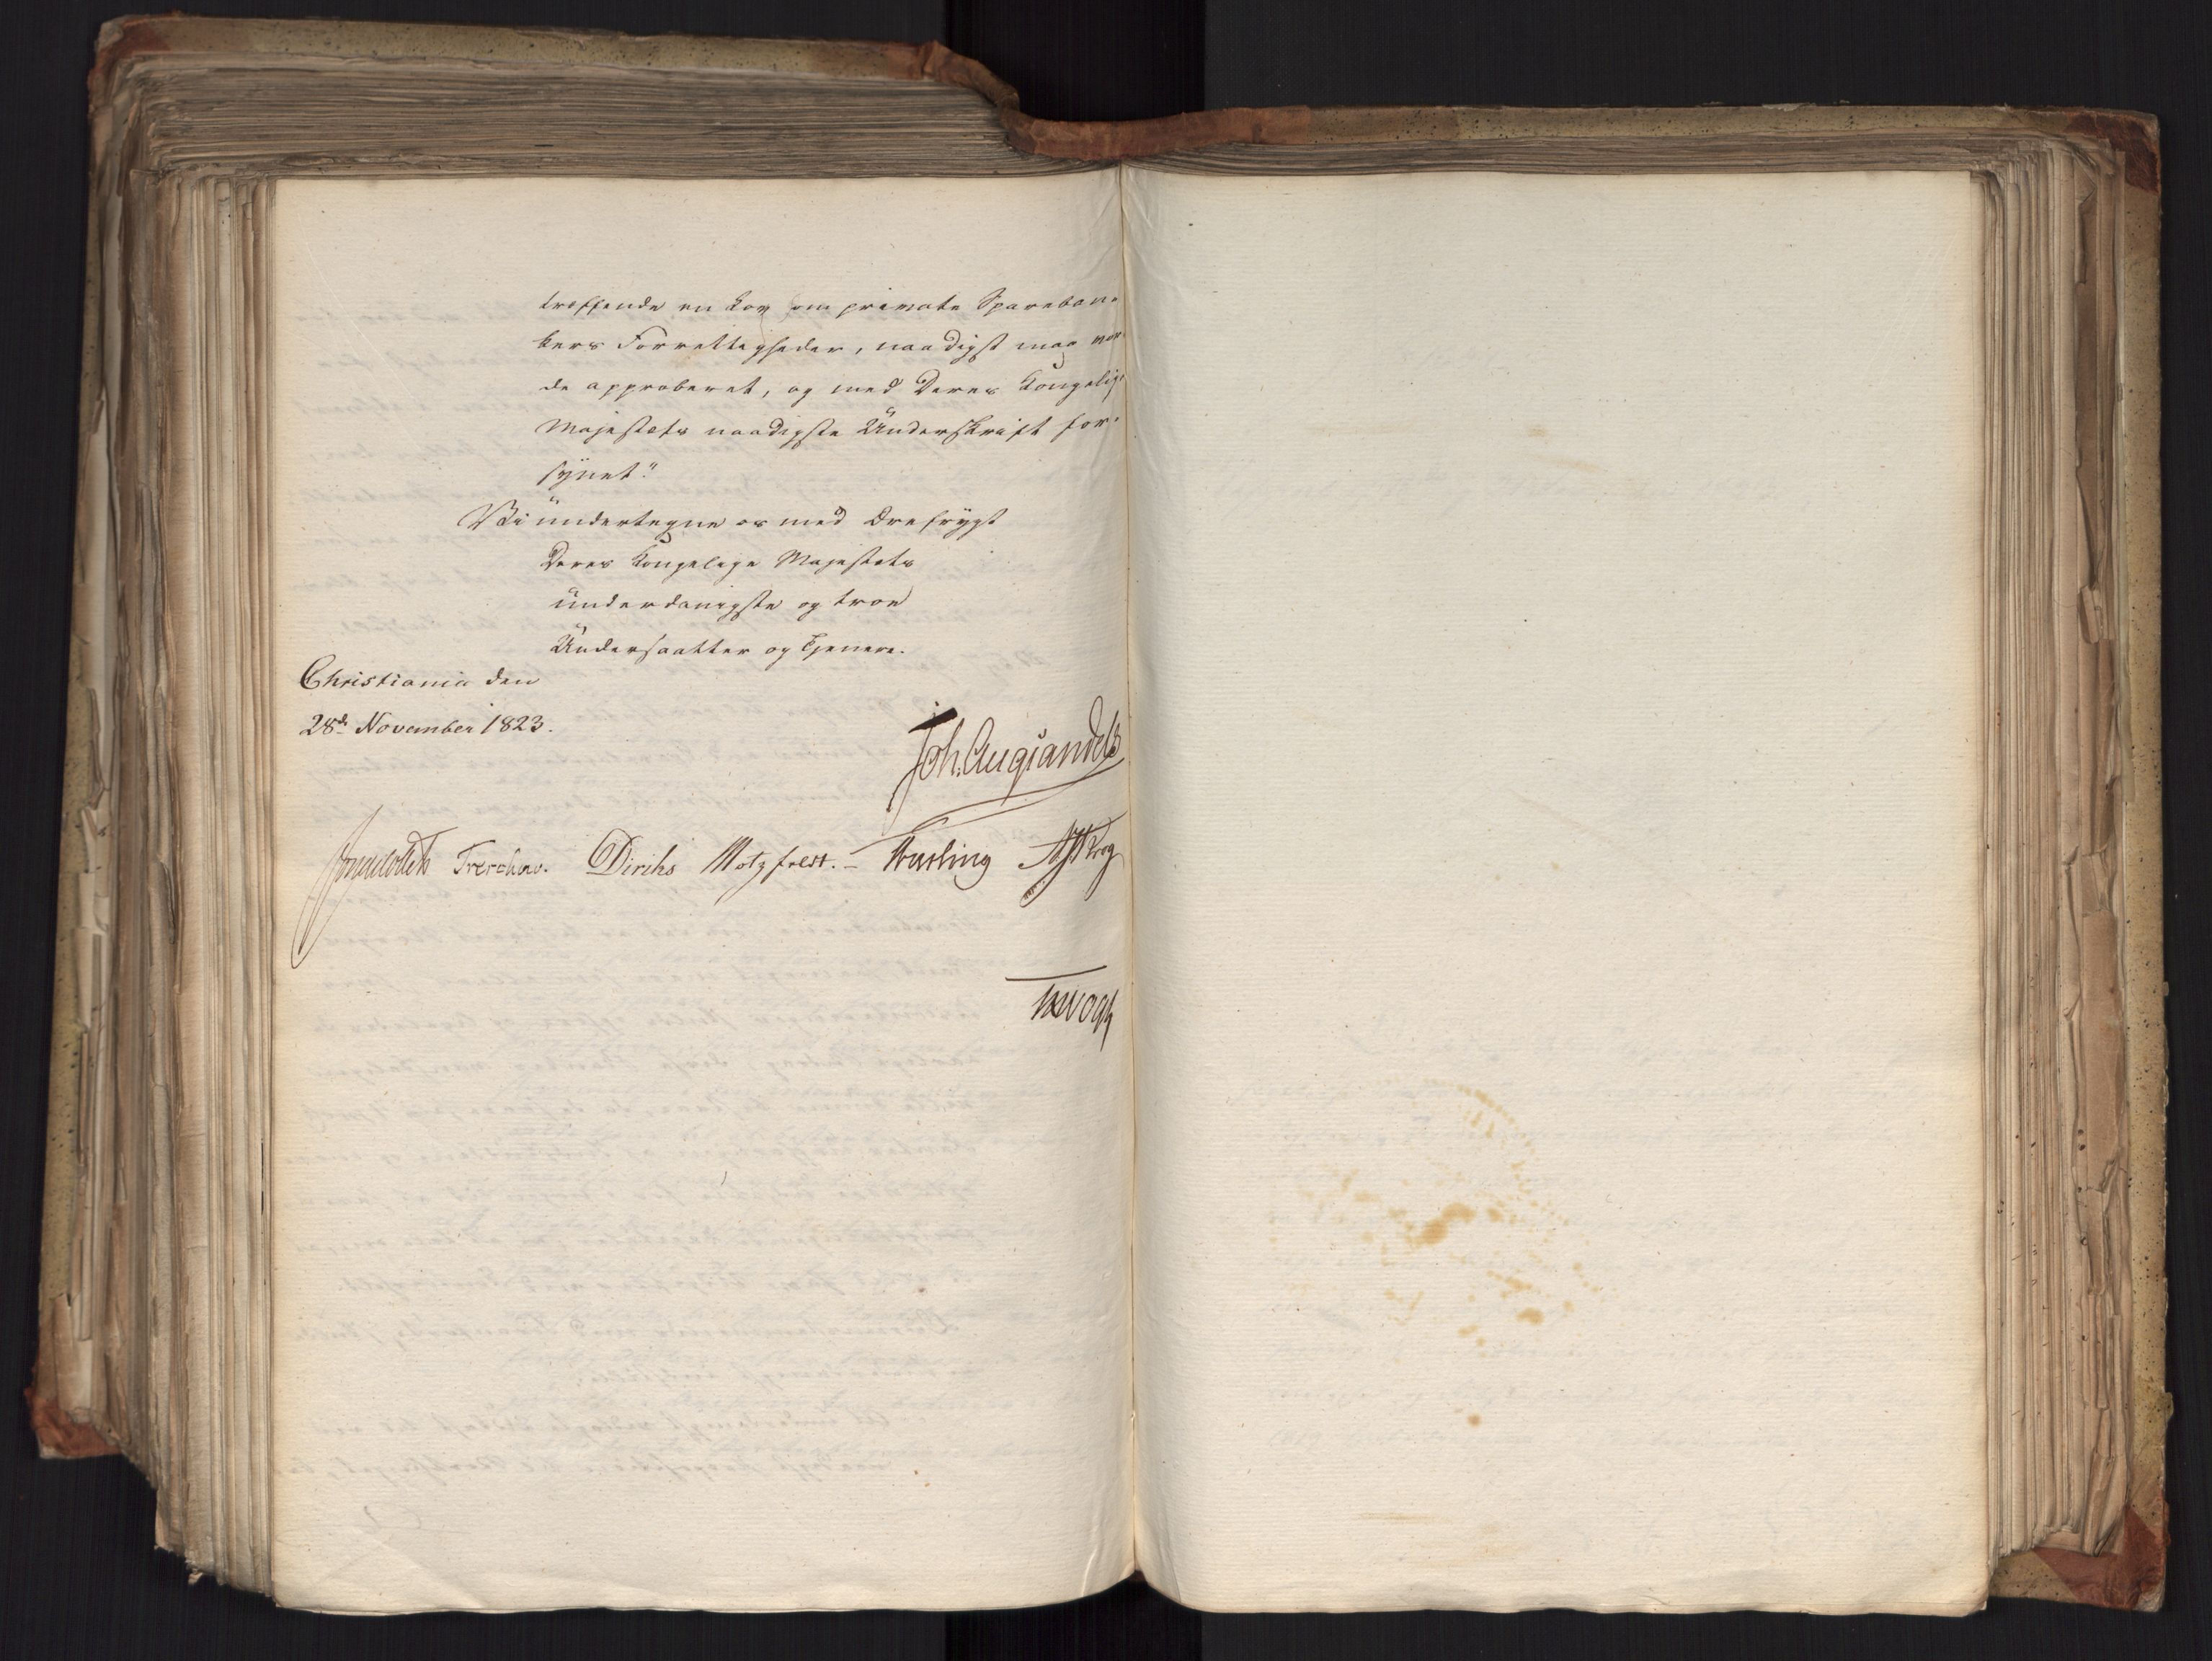 treffende en Lov om private Spareban-
kers Forrettigheder, naadigst maa vor-
de approberet, og med Deres Kongelige
Majestæts naadigste Underskrift for-
synet."
Vi undertegne os med Ærefrygt
Deres Kongelige Majestæts
underdanigste og troe
Undersaatter og Tjenere.
Christiania den
28de November 1823.
Joh. Aug Sandels
Sommerhielm Treschow. Diriks Motzfeldt.- Fasting P Krog
Vogt